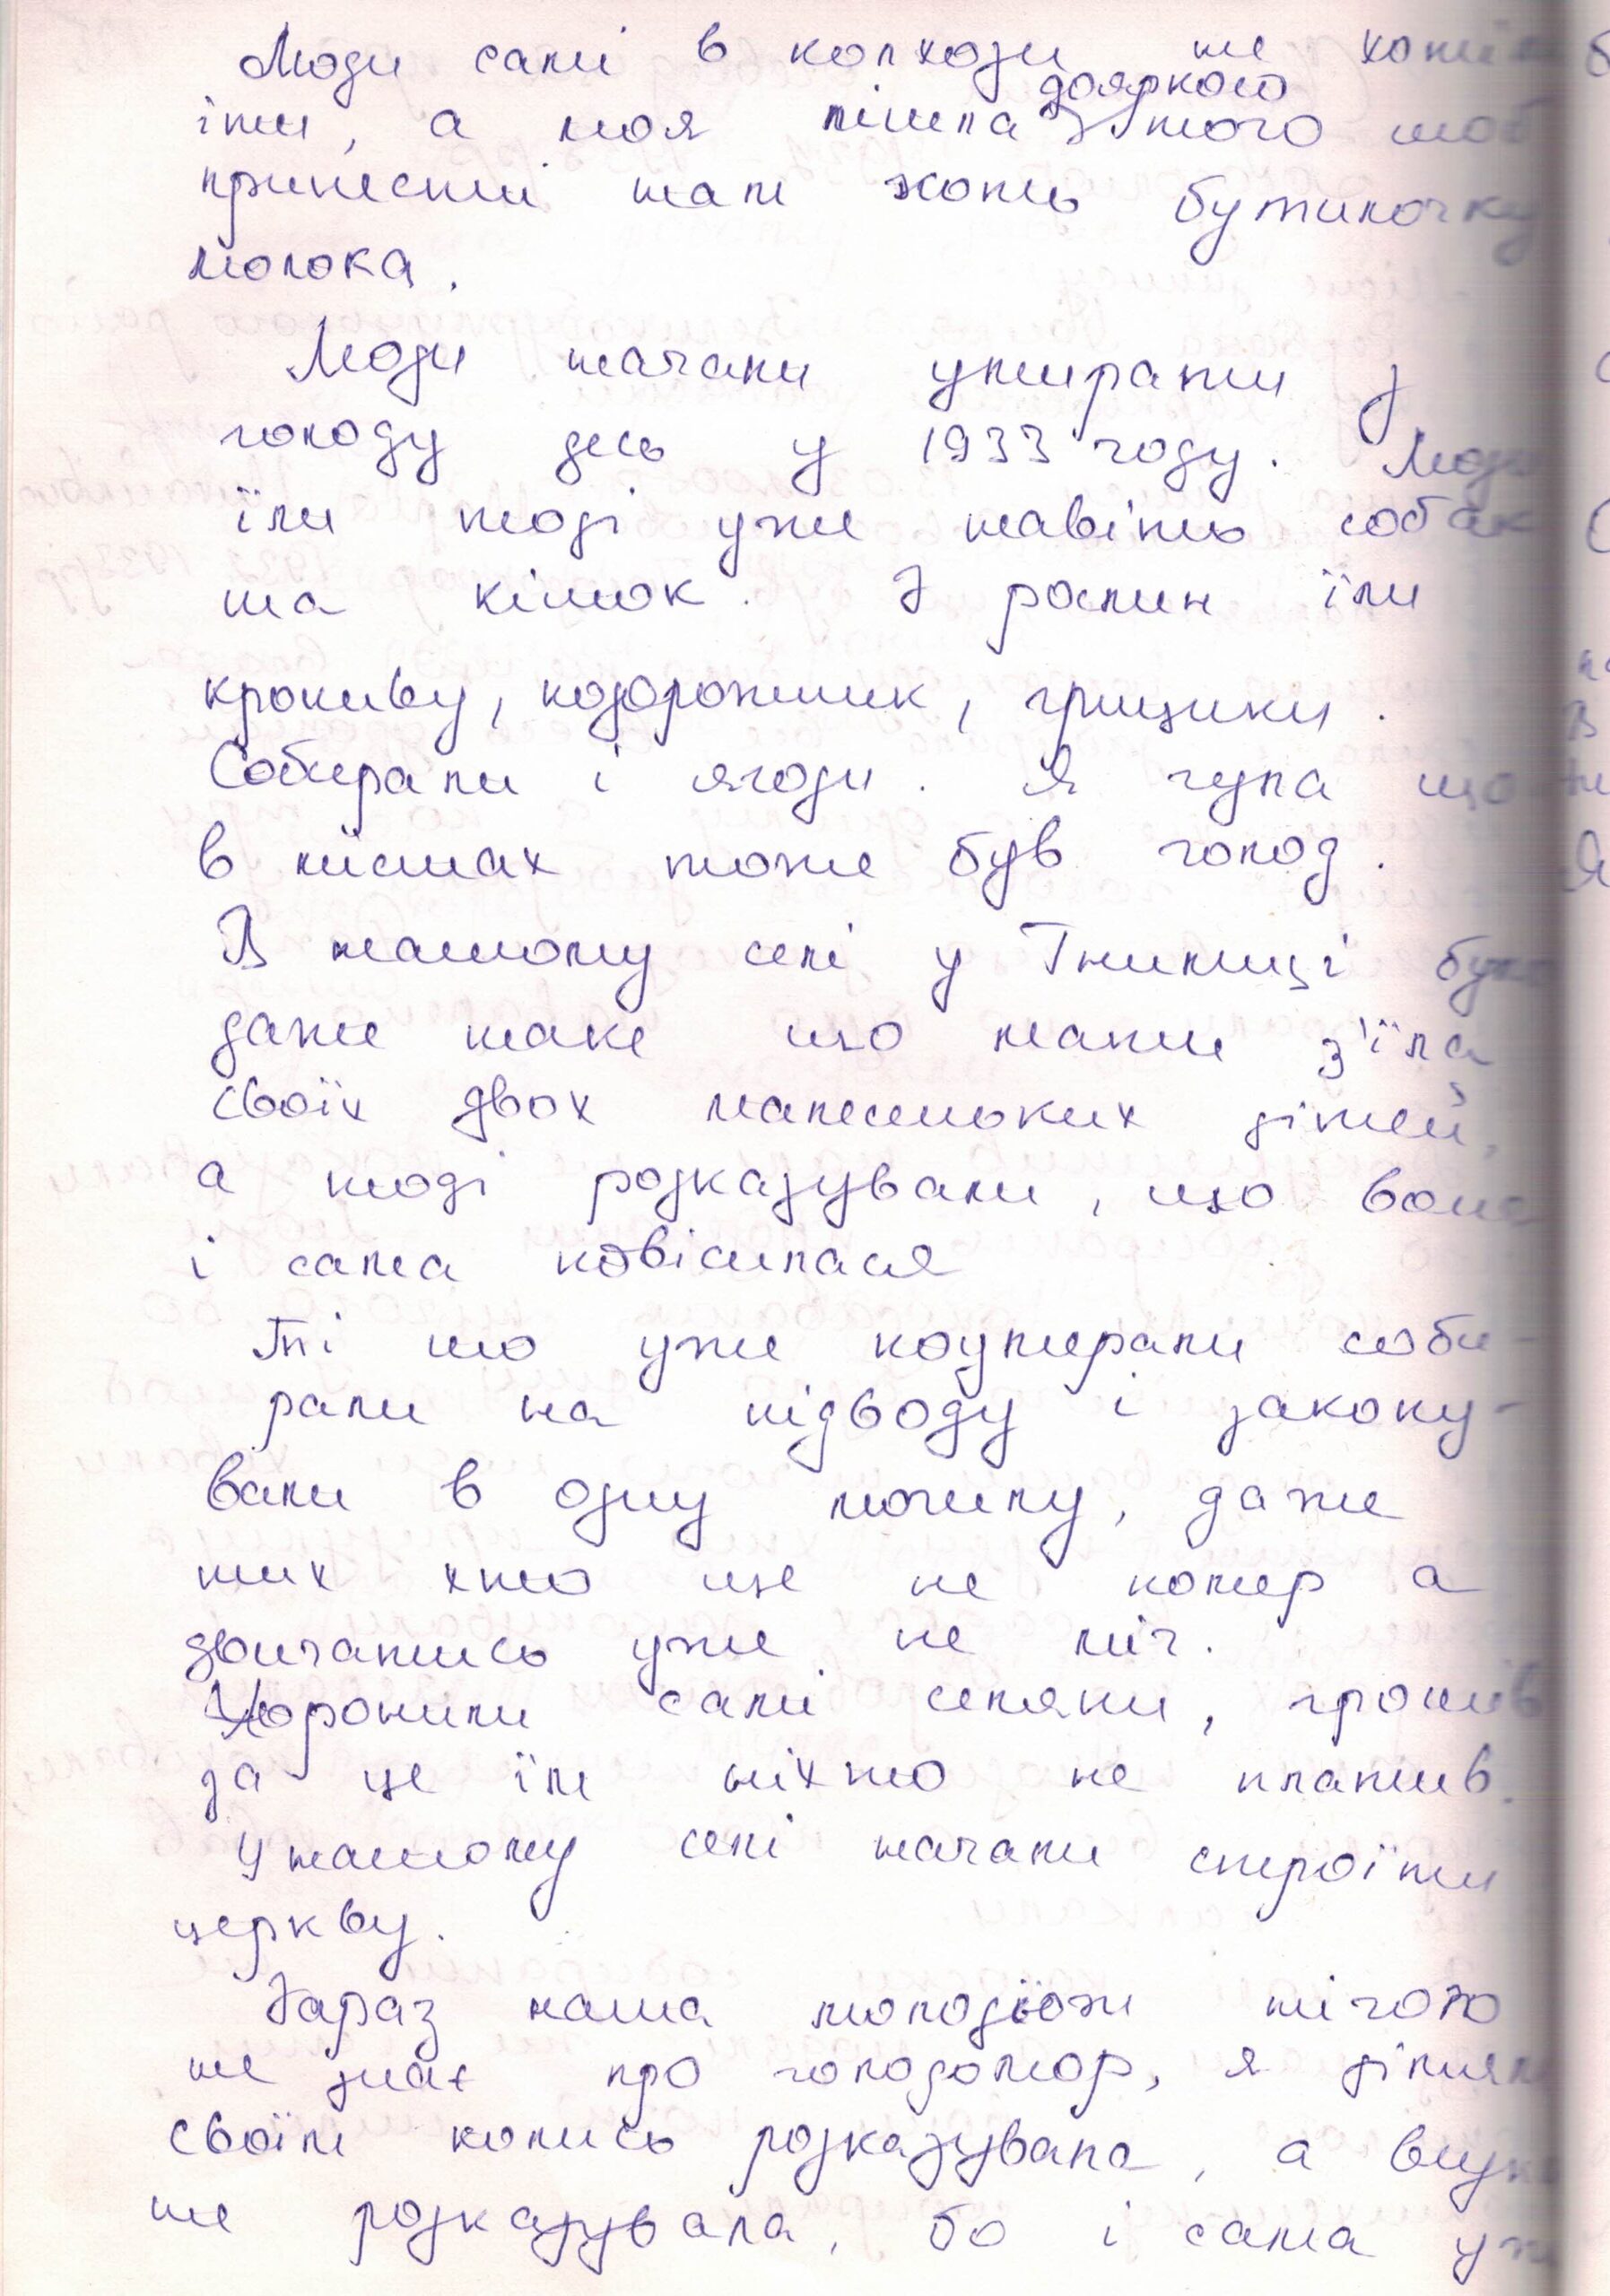 Люди самі в колхози не хотіли
дояркою
іти, а моя пішла з того щоб
принести нам хоть бутилочку
молока.
Люди начали умирати з
голоду десь у 1933 году. Люди
їли тоді уже навіть собак
та кішок. З рослин їли
кропиву, подорожник, грицики.
Собирали і ягоди. Я чула що
в містах тоже був голод.
В нашому селі у Гнилиці було
даже таке що мати з'їла
своїх двох малесоньких дітей,
а тоді розказували, що вона
і сама повісилася
Ті шо уже поумерали соби-
рали на підводу і закопу-
вали в одну могилу, даже
тих хто ще не помер а
двигатись уже не міг.
Хоронили самі селяни, грошів
за це їм ніхто не платив.
У нашому селі начали строїти
церкву.
Зараз наша молодьож нічого
не знає про голодомор, я дітям
своїм колись розказувала, а внукам
не розказувала, бо і сама уже